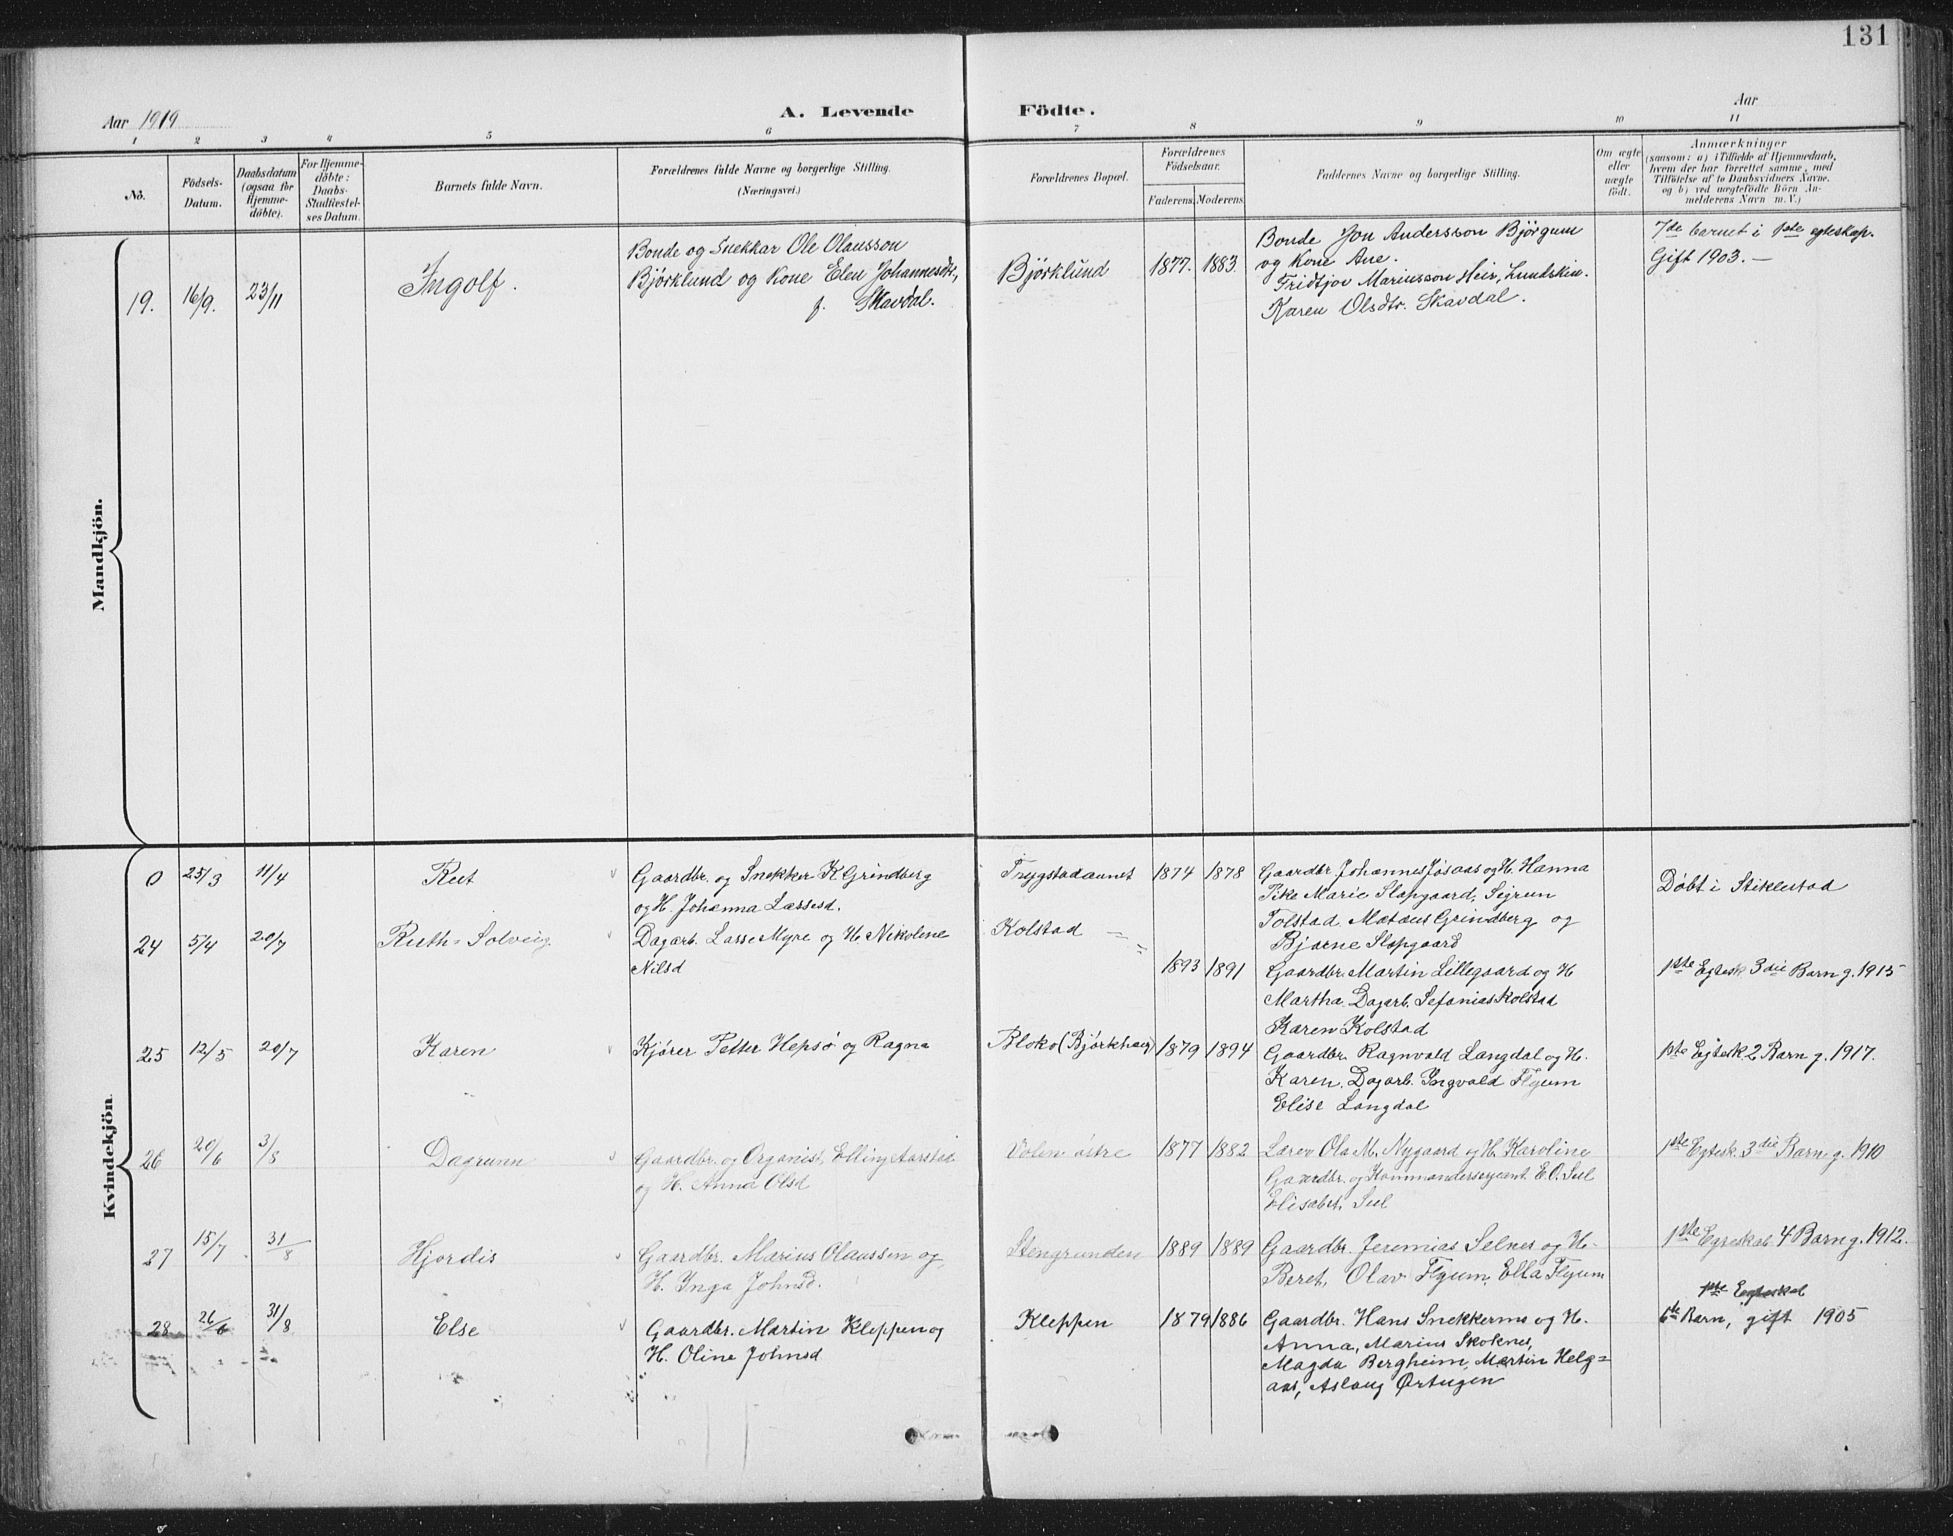 131
Aar 1919
A. Levende Födte.
Aar
1 2 3 4 5 6 7 8 9 10 11
No.
Födsels-Datum.
Daabsdatum (ogsaa for Hjemme-døbte).
For Hjemme-døbte: Daabs-Stadfæstel-ses Datum.
Barnets fulde Navn.
Forældrenes fulde Navne og borgerlige Stilling.
(Næringsvei.)
Forældrenes Bopæl.
Forældrenes Födselsaar.
Faderens. Moderens.
Faddernes Navne og borgerlige Stilling.
Om ægte eller uægte født.
Anmærkninger
(saasom: a) i Tilfælde af Hjemmedaab,
hvem der har forrettet samme, med
Tilføielse af to Daabsvidners Navne.
og b) ved uægtefödte Börn An-
melderens Navn m. V.)
Mandkjön.
19. 16/9. 23/11 Ingolf.
Bonde og Snekkar Ole Olausson
Björklund og Kone Elen Johannesdtr,
f. Skavdal.
Björklund 1877. 1883.
Bonde Jon Andersson Björgum
og Kone Ane.
Fridtjov Mariusson Heir, Lundskin.
Karen Olsdtr. Skavdal.
7de barnet i 1ste egteskap.
Gift 1903. —
Kvindekjön
0 25/3 11/4 Rut
Gaardbr. og Snekker K Grindberg
og H. Johanna Lassesd.
Trygstadaunet 1874 1878
Gaardbr. Johannes Jøsaas og H. Hanna
Pike Marie Slapgaard, Sigrun
Tolstad Matæus Grindberg og
Bjarne Slapgaard
Döbt i Stiklestad
24 5/4 20/7 Ruth = Solveig
Dagarb. Lasse Myre og H. Nikoline
Nilsd
Kolstad
1893 1891
Gaardbr. Martin Lillegaard og H
Martha Dagarb. Sefanias Kolstad
Karen Kolstad
1ste Egtesk 3die Barn g. 1915
25 12/5 20/7 Karen
Kjører Petter Hepsø og Ragna
Bloko (Bjørkhaug) 1879 1894
Gaardbr. Ragnvald Langdal og H.
Karen. Dagarb. Ingvald Flyum
Elise Langdal
1ste Egtesk 2 Barn g. 1917.
26 20/6 3/8 Dagrunn
Gaardbr. og Organist, Elling Aarstad
og H. Anna Olsd
Volen østre 1877 1882
Lærer Ola M. Nygaard og H. Karoline
Gaardbr. og Kommandersergeant. E. O. Sul
Elisabet Sul
1ste Egtesk. 3die Barn g. 1910
27 15/7 31/8 Hjordis
Gaardbr. Marius Olaussen og
H. Inga Johnsd.
Stengrunden 1889 1889
Gaardbr. Jeremias Selnes og H.
Beret, Olav Flyum, Ella Flyum
1ste Egteskab 4 Barn g. 1912.
28 26/6 31/8 Else
Gaardbr. Martin Kleppen og
H. Oline Johnsd
Kleppen 1879 1886
Gaardbr. Hans Snekkermo og H.
Anna, Marius Skoknes,
Magda Bergheim, Martin Helg=
aas, Aslaug Ørtugen
1ste Egteskab
6te Barn, gift 1905